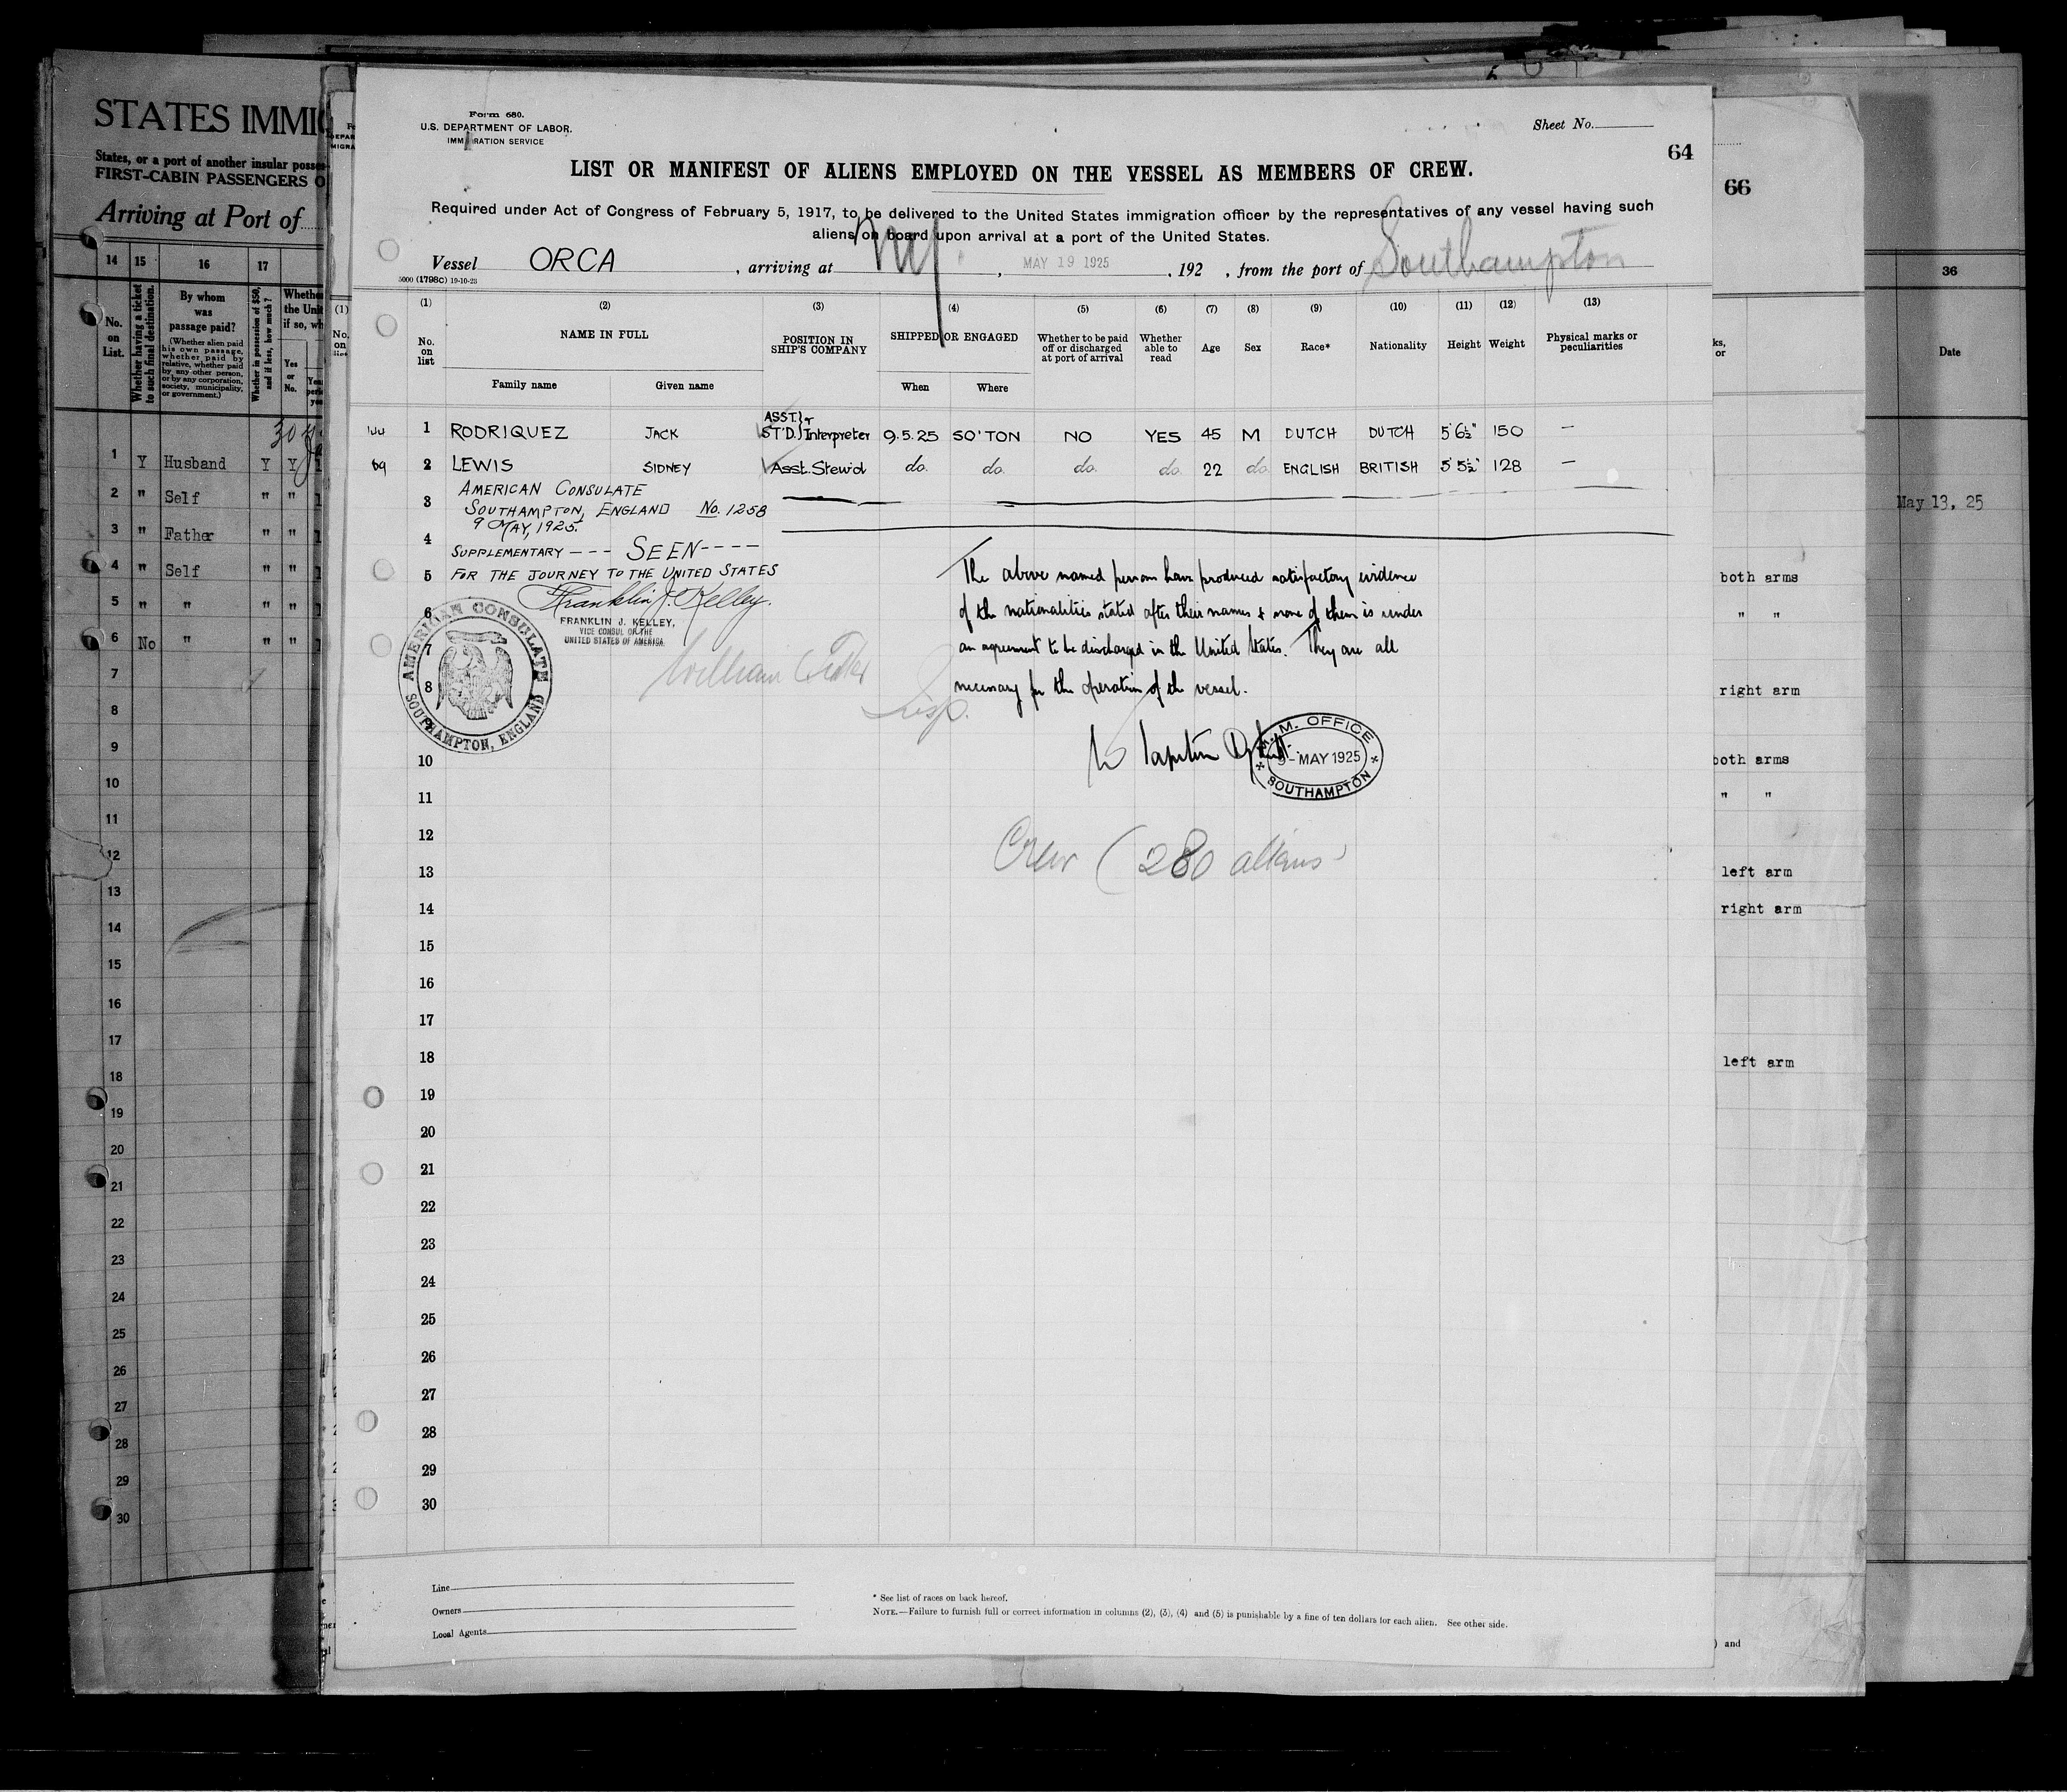 STATES IMMI
States, or a port of another insular posse
FIRST-CABIN PASSENGERS O
Arriving at Port of
14 15 16 17
No. on List.
Whether having a ticket to such final destination.
By whom was passage paid?
(Whether alien paid his own passage, whether paid by relative, whether paid by any other person, or by any corporation, society, municipality, or government.)
Whether in possession of $50, and if less, how much?
Yes or No.
30
1 Y Husband Y Y
2 " Self " "
3 " Father " "
4 " Self " "
5 " " " "
6 No " " "
7
8
9
10
11
12
13
14
15
16
17
18
19
20
21
22
23
24
25
26
27
28
29
30
Form 680.
U.S. DEPARTMENT OF LABOR.
IMMIGRATION SERVICE
Sheet No.
64
LIST OR MANIFEST OF ALIENS EMPLOYED ON THE VESSEL AS MEMBERS OF CREW.
Required under Act of Congress of February 5, 1917, to be delivered to the United States immigration officer by the representatives of any vessel having such
aliens on board upon arrival at a port of the United States.
Vessel ORCA, arriving at NY, MAY 19 1925, 192 , from the port of Southampton
5000 (1798C) 19-10-23
(1) (2) (3) (4) (5) (6) (7) (8) (9) (10) (11) (12) (13)
No. on list
NAME IN FULL
Family name Given name
POSITION IN SHIP'S COMPANY
SHIPPED OR ENGAGED
When Where
Whether to be paid off or discharged at port of arrival
Whether able to read
Age Sex Race* Nationality Height Weight
Physical marks or peculiarities
1 RODRIQUEZ JACK ASST. ST'D. & Interpreter 9.5.25 SO'TON NO YES 45 M DUTCH DUTCH 5'6½" 150 —
69 2 LEWIS SIDNEY Asst. Stew'd do. do. do. do. 22 do. ENGLISH BRITISH 5'5½" 128 —
3
4
5
6
7
8
AMERICAN CONSULATE
SOUTHAMPTON, ENGLAND No. 1258
9 MAY, 1925.
SUPPLEMENTARY --- SEEN ----
FOR THE JOURNEY TO THE UNITED STATES
Franklin J. Kelley.
FRANKLIN J. KELLEY,
VICE CONSUL OF THE
UNITED STATES OF AMERICA
AMERICAN CONSULATE
SOUTHAMPTON, ENGLAND
William
Insp.
The above named persons have produced satisfactory evidence
of the nationalities stated after their names & none of them is under
an agreement to be discharged in the United States. They are all
necessary for the operation of the vessel.
M.M. OFFICE
9 - MAY 1925
SOUTHAMPTON
Crew (280 aliens)
10
11
12
13
14
15
16
17
18
19
20
21
22
23
24
25
26
27
28
29
30
Line
Owners
Local Agents
* See list of races on back hereof.
NOTE.—Failure to furnish full or correct information in columns (2), (3), (4) and (5) is punishable by a fine of ten dollars for each alien. See other side.
66
36
Date
May 13, 25
both arms
" "
right arm
both arms
" "
left arm
right arm
left arm
) and